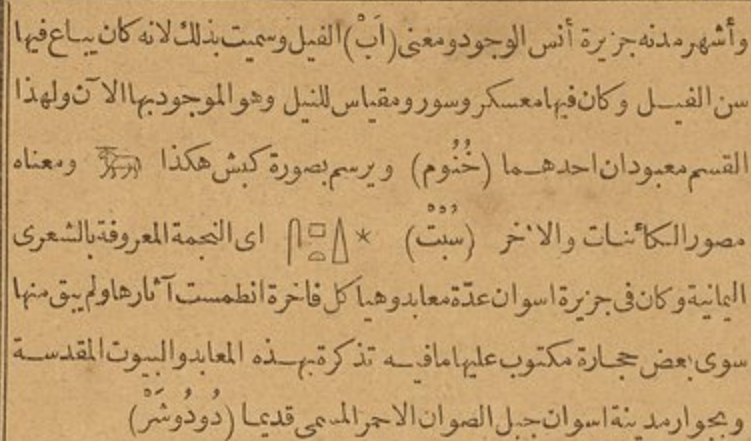 وأشهر مدنه جزيرة أنس الوجود ومعنى (اَبْ) الفيل وسميت بذلك لانه كان يباع فيها
سن الفيل وكان فيها معسكر وسور ومقياس للنيل وهو الموجود بها الآن ولهذا
القسم معبودان احدهما (خُنُوم) ويرسم بصورة كبش هكذا ومعناه
مصور الكائنات والاخر (سبُتْ) اى النجمة المعروفة بالشعرى
اليمانية وكان فى جزيرة اسوان عدّة معابد وهياكل فاخرة انطمست آثارها ولم يبق منها
سوى بعض حجارة مكتوب عليها مافيه تذكرة بهذه المعابد والبيوت المقدسة
وبجوار مدينة اسوان جبل الصوان الاحمر المسمى قديما (دُودُوشَرْ)